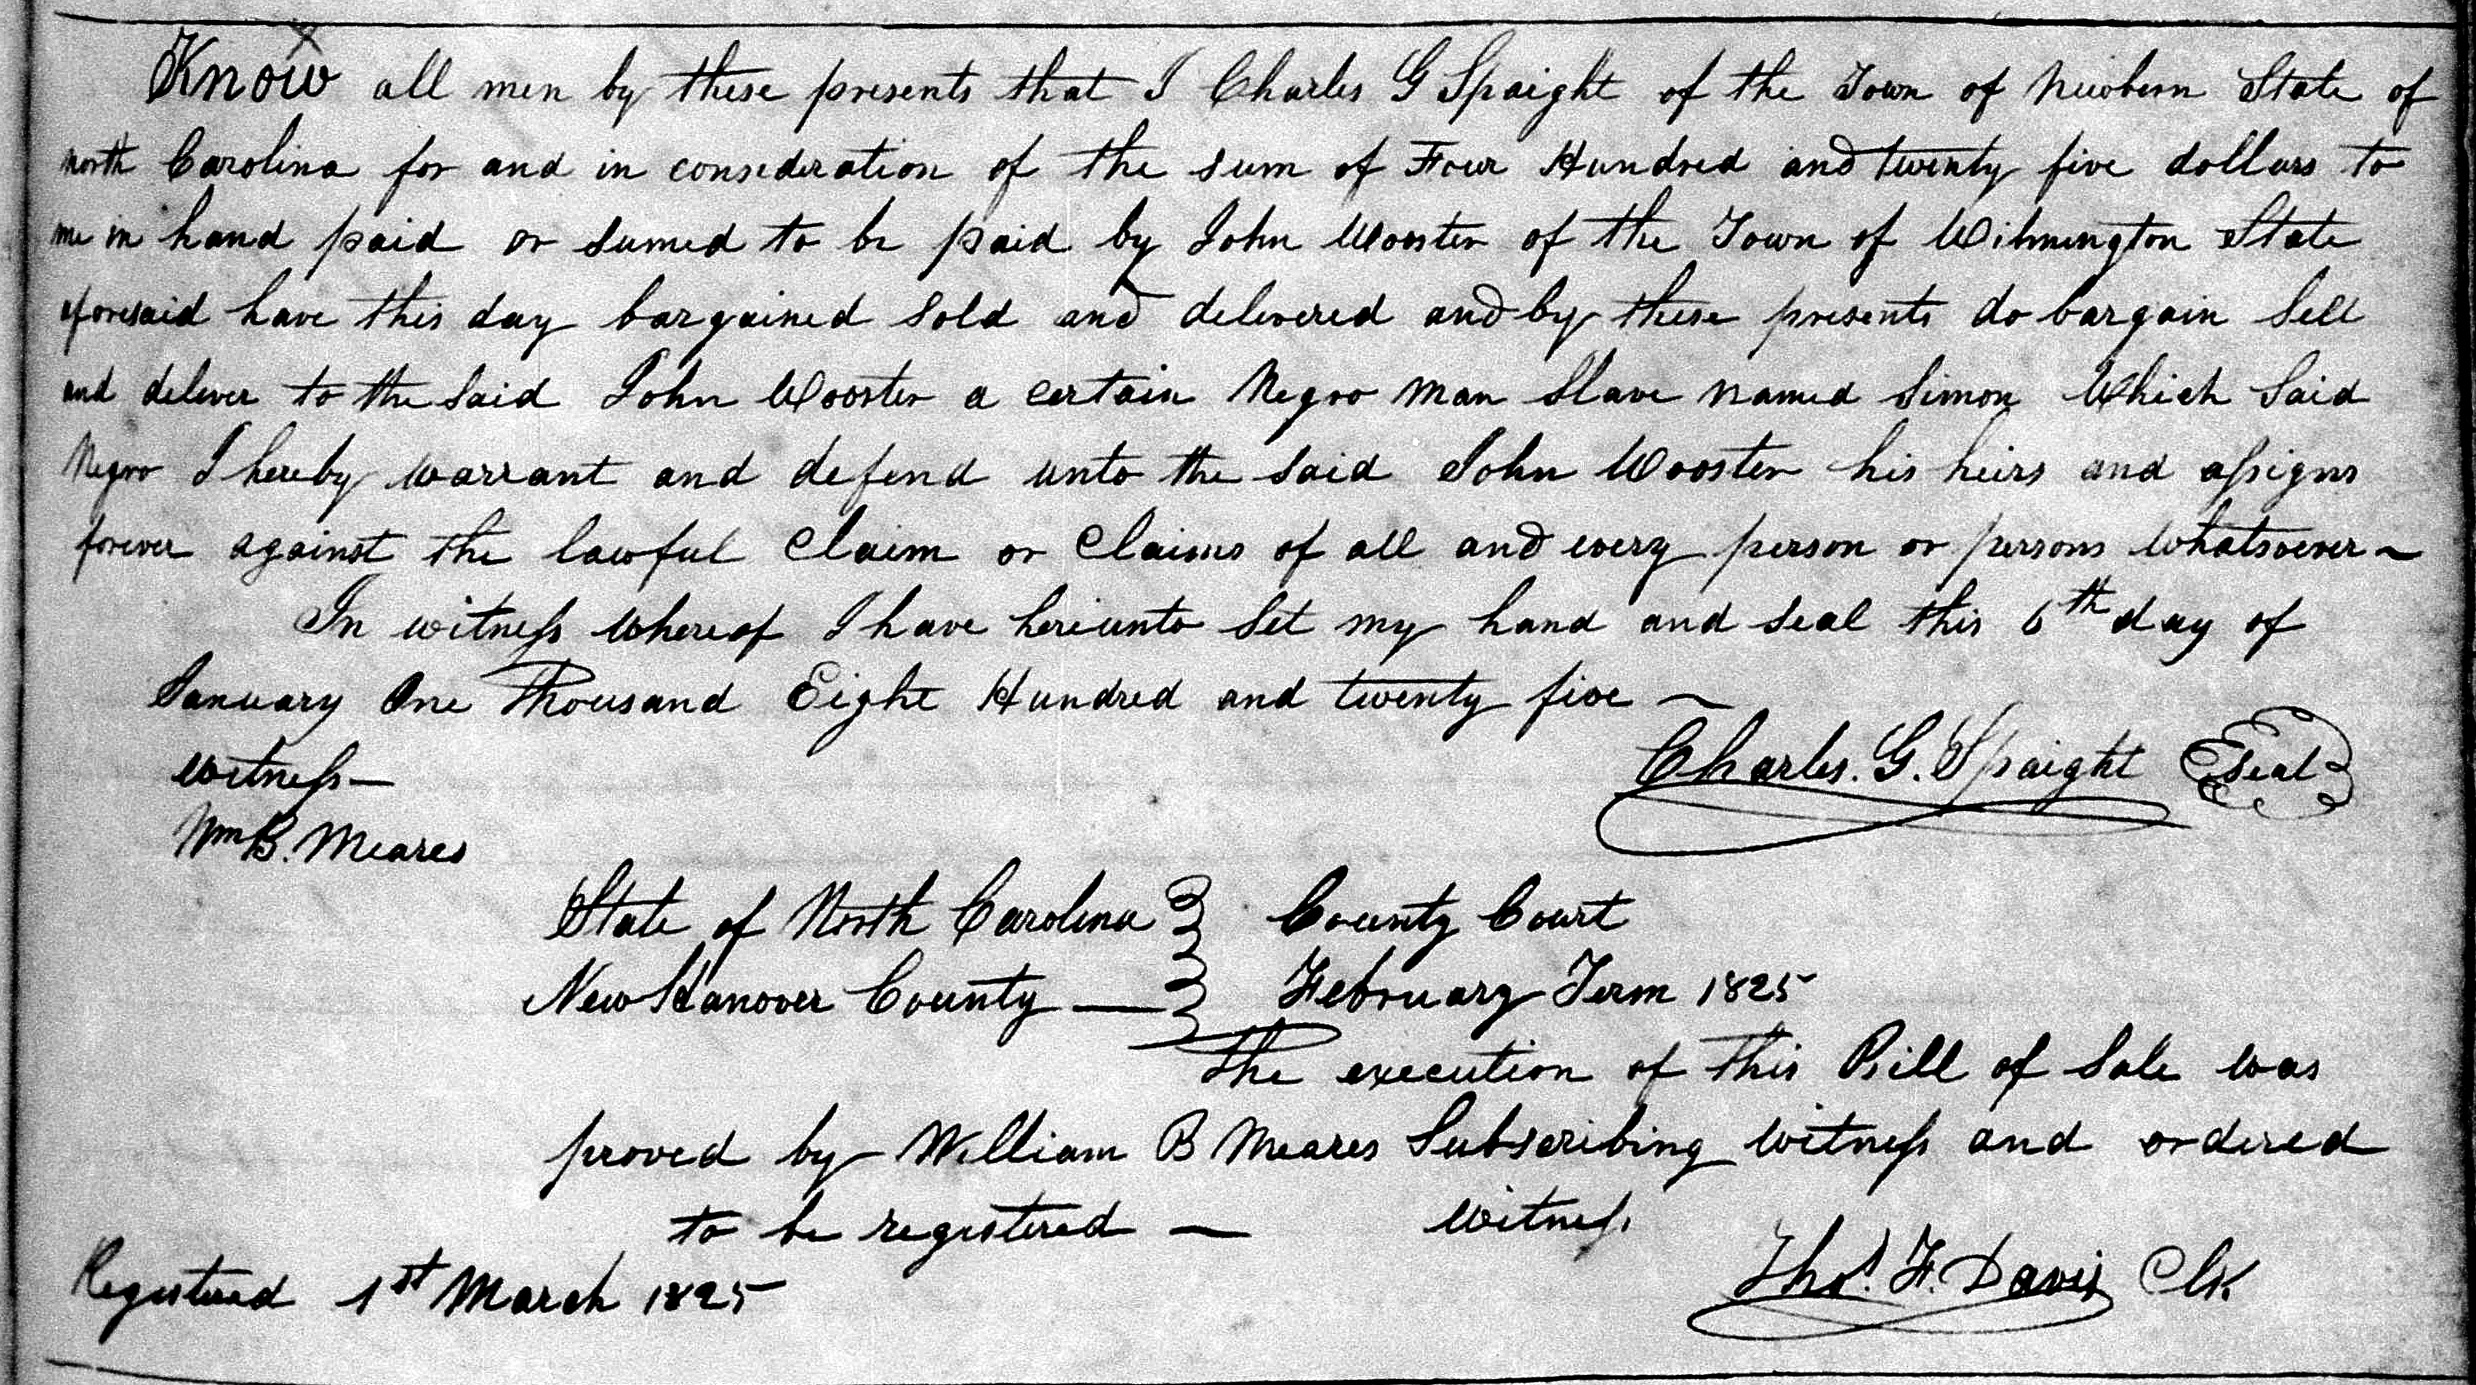 Know all men by these presents that I Charles G Spaight of the Town of Newbern State of
North Carolina for and in consideration of the sum of Four Hundred and twenty five dollars to
me in hand paid or sumed to be paid by John Wooster of the Town of Wilmington State
aforesaid have this day bargained sold and delivered and by these presents do bargain Sell
and deliver to the said John Wooster a certain Negro man Slave named Simon Which Said
Negro I hereby warrant and defend unto the said John Wooster his heirs and assigns
forever against the lawful Claim or Claims of all and every person or persons Whatsoever ~
In witness whereof I have hereunto Set my hand and seal this 6th day of
January One Thousand Eight Hundred and twenty five ~
Witness — Charles. G. Spaight Seal
Wm B. Meares
State of North Carolina } County Court
New Hanover County — } February Term 1825
The execution of this Bill of Sale was
proved by William B Meares Subscribing Witness and ordered
to be registered — Witness
Registered 1st March 1825 Thos. F. Davis Clk